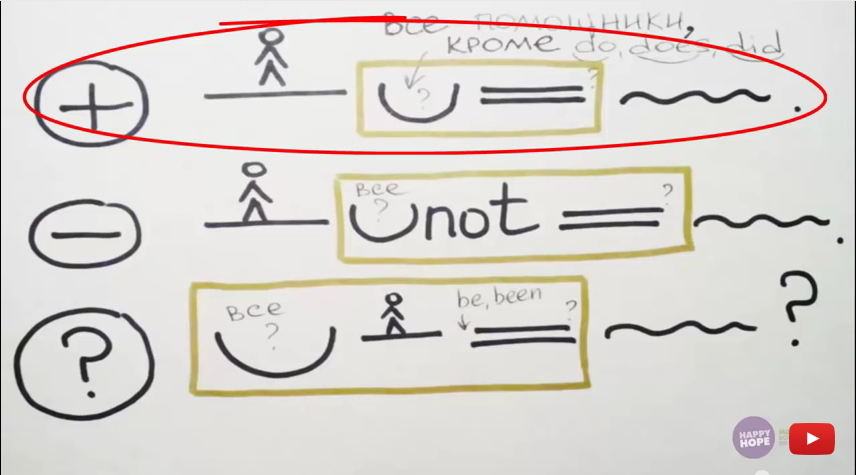 все помощники,
кроме do, does, did
?
?
+
.
все
?
not
?
.
все
?
be, been
?
?
?
HAPPY
HOPE